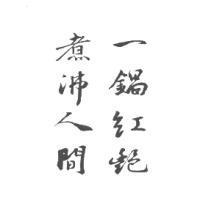 一鍋紅艷
煮沸人間